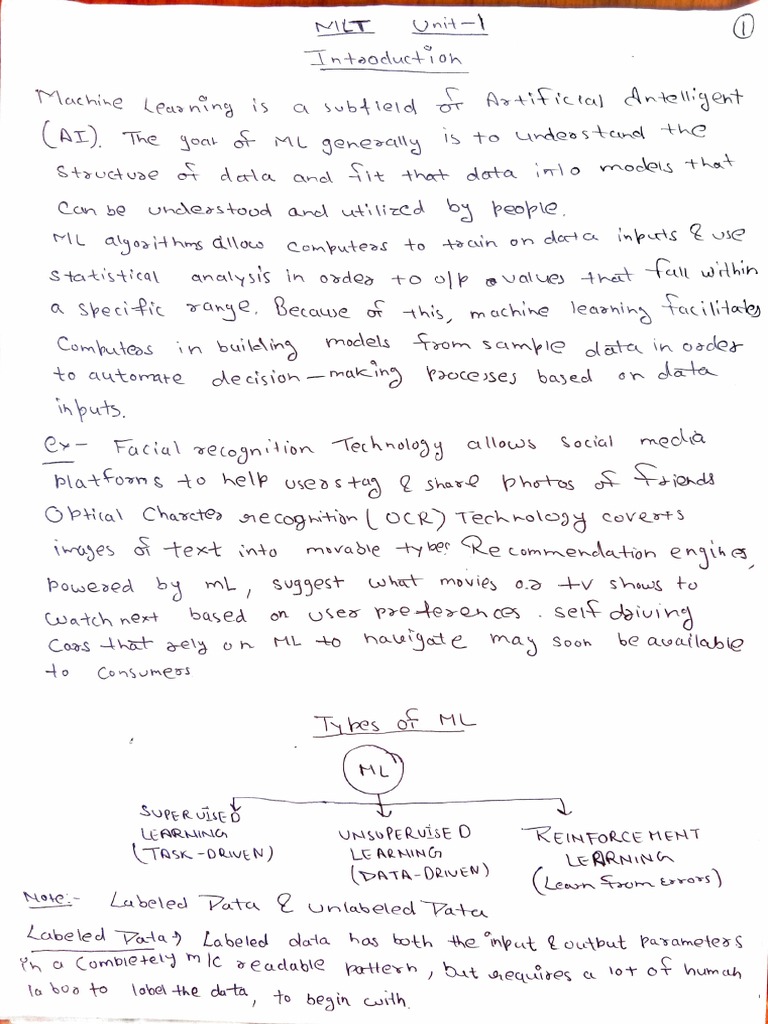 MLT Unit-1
1
Introduction
Machine Learning is a subfield of Artificial Intelligent
(AI). The goal of ML generally is to understand the
structure of data and fit that data into models that
can be understood and utilized by people.
ML algorithms allow computers to train on data inputs & use
statistical analysis in order to o/p values that fall within
a specific range. Because of this, machine learning facilitates
Computers in building models from sample data in order
to automate decision-making processes based on data
inputs.
ex- Facial recognition Technology allows social media
platforms to help users tag & share photos of friends
Optical Charcter recognition (OCR) Technology coverts
images of text into movable type. Recommendation engines,
powered by ML, suggest what movies or tv shows to
watch next based on user preferences. self driving
cars that rely on ML to navigate may soon be available
to consumers
Types of ML
ML
SUPERVISED
LEARNING
(TASK-DRIVEN)
UNSUPERVISED
LEARNING
(DATA-DRIVEN)
REINFORCEMENT
LEARNING
(Learn from errors)
Note:- Labeled Data & Unlabeled Data
Labeled Data → Labeled data has both the input & output parameters
in a Completely m/c readable pattern, but requires a lot of human
labor to label the data, to begin with.